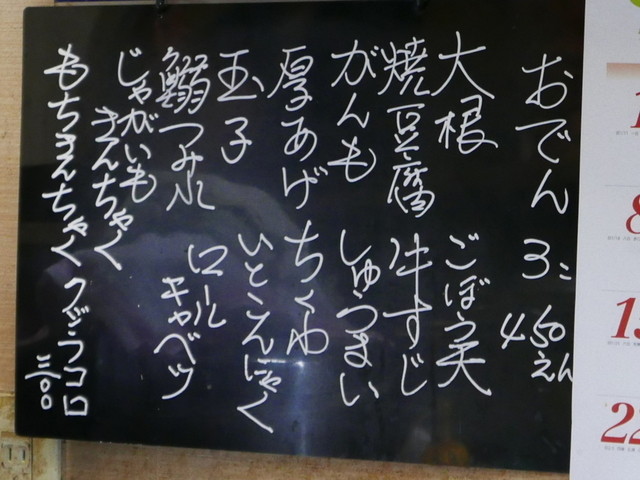 おでん 3コ 450えん
大根 ごぼう天
焼豆腐 牛すじ
がんも しゅうまい
厚あげ ちくわ
玉子 いとこんにゃく
鰯つみれ ロールキャベツ
じゃがいも
きんちゃく
もちきんちゃく クジラコロ 三〇〇
1
8
15
22